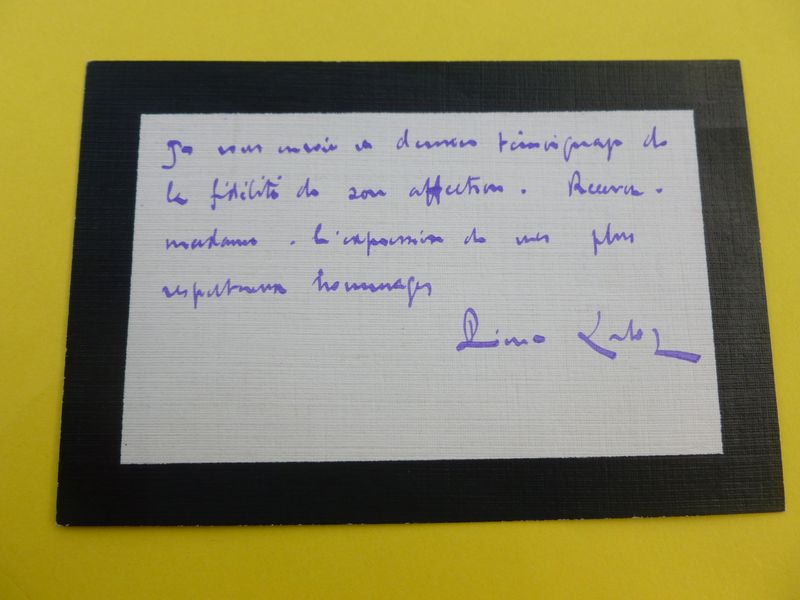 Je vous envoie ce dernier témoignage de
la fidélité de son affection. Recevez.
madame. l'expression de mes plus
respectueux hommages
Pierre